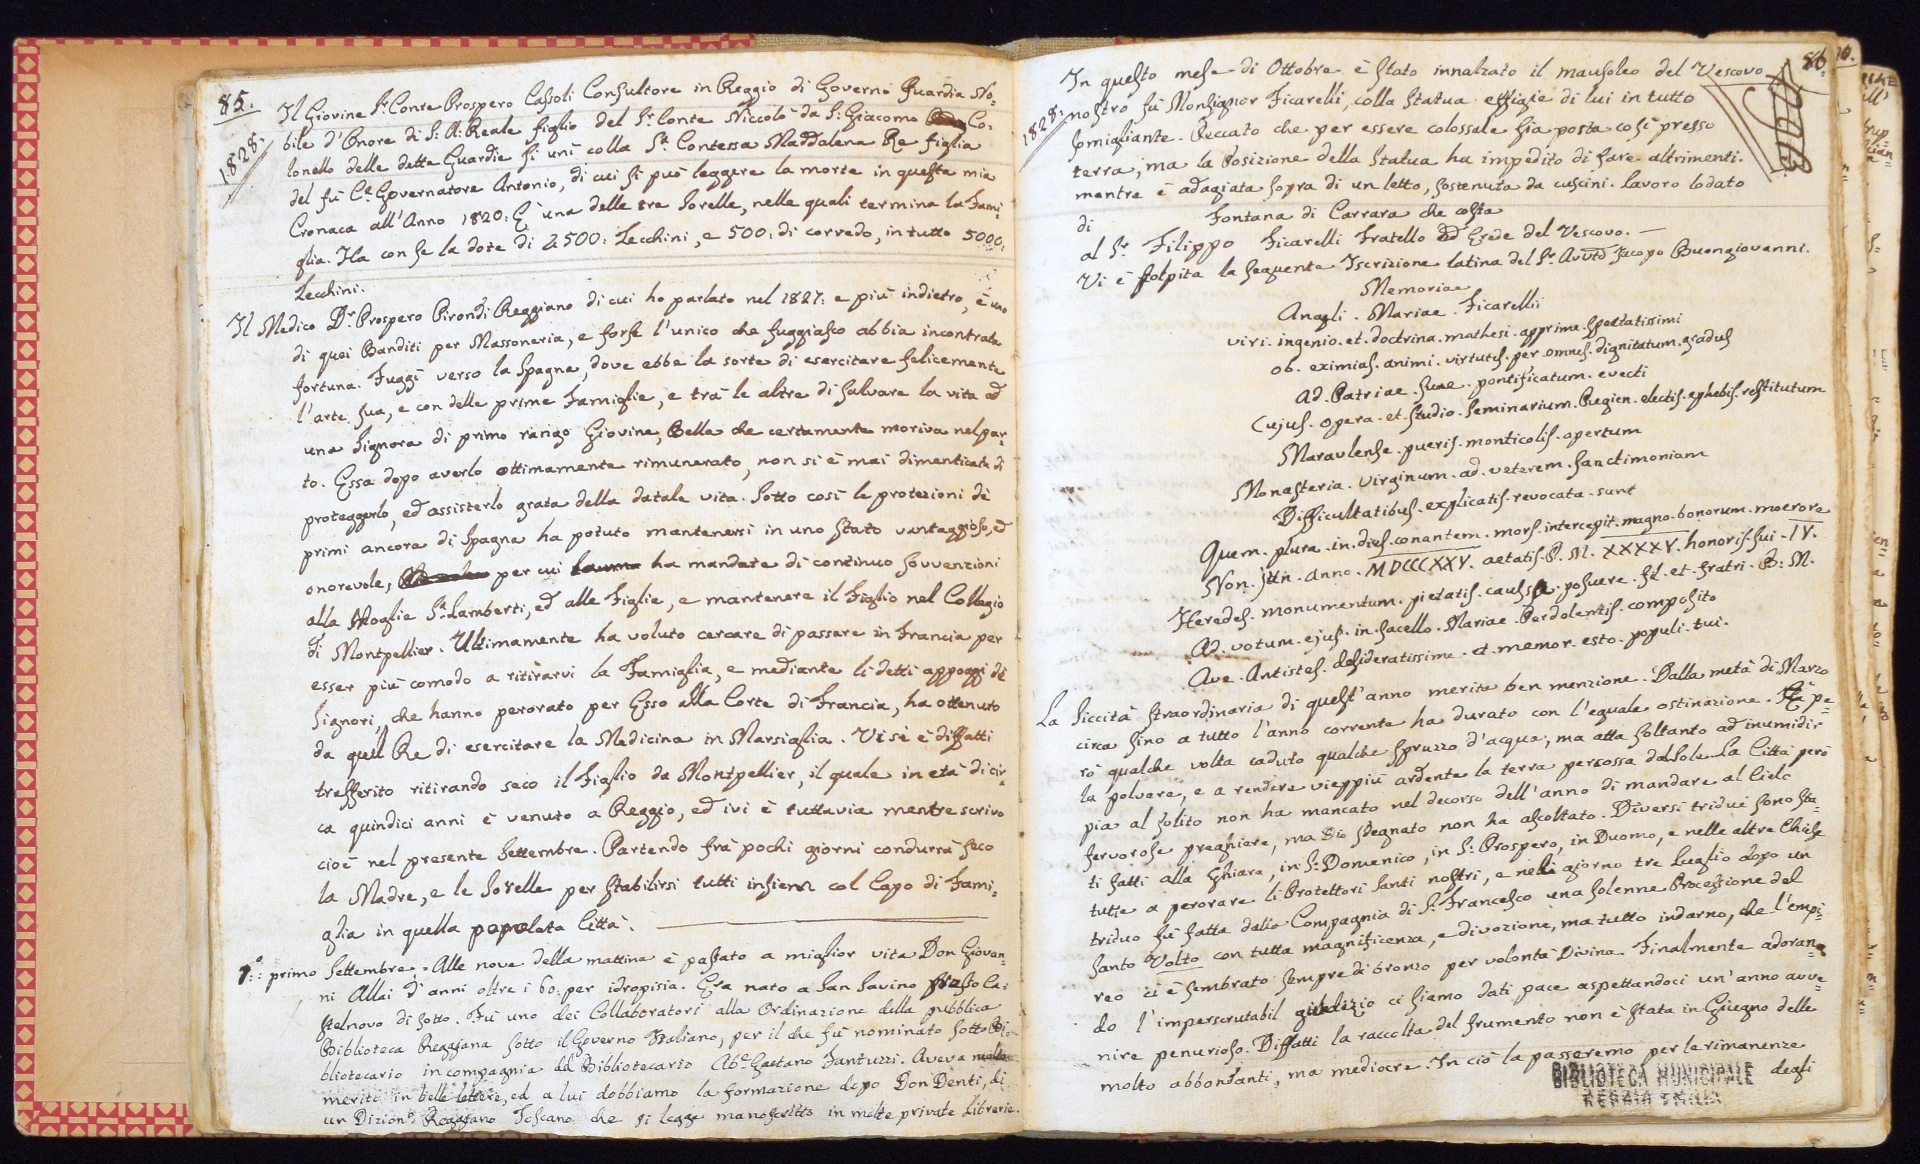 85.
1828:
Il Giovine Sr. Conte Prospero Cassoli Consultore in Reggio di Governo Guardia No=
bile d'Onore di S. A. Reale figlio del Sr. Conte Niccolò da S. Giacomo Co=
lonello delle dette Guardie si unì colla Sa. Contessa Maddalena Re figlia
del fù Ce. Governatore Antonio, di cui si può leggere la morte in questa mia
Cronaca all'Anno 1820: È una delle tre Sorelle, nelle quali termina la Fami=
glia. Ha con se la dote di 4500: Zecchini, e 500: di corredo, in tutto 5000:
Zecchini.
Il Medico Dr. Prospero Pirondi Reggiano di cui ho parlato nel 1821: e più indietro, è uno
di quei Banditi per Massoneria, e forse l'unico che fuggiasco abbia incontrata
fortuna. Fuggì verso la Spagna, dove ebbe la sorte di esercitare felicemente
l'arte sua, e con delle prime Famiglie, e trà le altre di salvare la vita ad
una Signora di primo rango Giovine, Bella che certamente moriva nel par=
to. Essa dopo averlo ottimamente rimunerato, non si è mai dimenticata di
proteggerlo, ed assisterlo grata della datale vita. Sotto così le protezioni de
primi ancora di Spagna ha potuto mantenersi in uno stato vantaggioso, ed
onorevole, per cui ha mandate di continuo sovvenzioni
alla Moglie Sa. Lamberti, ed alle Figlie, e mantenere il Figlio nel Collegio
di Montpellier. Ultimamente ha voluto cercare di passare in Francia per
esser più comodo a ritirarvi la Famiglia, e mediante li detti appoggi di
Signori, che hanno perorato per Esso alla Corte di Francia, ha ottenuto
da quel Re di esercitare la Medicina in Marsiglia. Vi si è diffatti
trasferito ritirando seco il Figlio da Montpellier, il quale in età di cir=
ca quindici anni è venuto a Reggio, ed ivi è tuttavia mentre scrivo
cioè nel presente Settembre. Partendo frà pochi giorni condurrà seco
la Madre, e le Sorelle per stabilirsi tutti insiem col Capo di Fami=
glia in quella popolata Città.
1º: primo Settembre. Alle nove della mattina è passato a miglior vita Don Giovan=
ni Allai d'anni oltre i 60: per idropisia. Era nato a San Savino presso Ca=
stelnovo di Sotto. Fù uno dei Collaboratori alla Ordinazione della pubblica
Biblioteca Reggiana sotto il Governo Italiano, per il che fù nominato Sotto Bi=
bliotecario in compagnia del Bibliotecario Abe. Gaetano Fantuzzi. Aveva molto
merito in belle lettere, ed a lui dobbiamo la formazione dopo Don Denti, di
un Diziono. Reggiano Toscano che si legge manoscritto in molte private Librerie.
86
1828:
In questo mese di Ottobre è stato innalzato il mausoleo del Vescovo
nostro fù Monsignor Ficarelli, colla statua effigie di lui in tutto
somigliante. Peccato che per essere colossale sia posta così presso
terra; ma la posizione della statua ha impedito di fare altrimenti.
mentre è adagiata sopra di un letto, sostenuta da cuscini. Lavoro lodato
di Fontana di Carrara che costa
al Sr. Filippo Ficarelli Fratello ed Erede del Vescovo. —
Vi è scolpita la seguente Iscrizione latina del Sr. Avvto. Jacopo Buongiovanni.
Memoriae
Angeli . Mariae . Ficarellii
viri . ingenio . et . doctrina . mathesi . apprime . spectatissimi
ob . eximias . animi . virtutes . per . omnes . dignitatum . gradus
ad . Patriae . suae . pontificatum . evecti
Cujus . opera . et . studio . Seminarium . Regien . electis . ephebis . restitutum
Maraulense . pueris . monticolis . opertum
Monasteria . virginum . ad . veterem . sanctimoniam
Difficultatibus . explicatis . revocata . sunt
Quem . plura . in . dies . conantem . mors . intercepit . magno . bonorum . moerore
Non . Jun . anno . MDCCCXXV . aetatis . P. M. XXXXV . honoris . sui . IV.
Heredes . monumentum . pietatis . caussa . posuere . fil . et . fratri . B. M.
Ad . votum . ejus . in . sacello . Mariae . Perdolentis . composito
Ave . Antistes . desideratissime . et . memor . esto . populi . tui .
La Siccità straordinaria di quest'anno merita ben menzione. Dalla metà di Marzo
circa fino a tutto l'anno corrente ha durato con l'eguale ostinazione. È pe=
rò qualche volta caduto qualche spruzzo d'acqua, ma atta soltanto ad inumidir
la polvere, e a rendere vieppiù ardente la terra percossa dal Sole. La Città però
pia al solito non ha mancato nel decorso dell'anno di mandare al Cielo
fervorose preghiere, ma Dio sdegnato non ha ascoltato. Diversi tridui sono sta=
ti fatti alla Ghiara, in S. Domenico, in S. Prospero, in Duomo, e nelle altre Chiese
tutte a perorare li Protettori Santi nostri, e nel giorno tre Luglio dopo un
triduo fù fatta dalla Compagnia di S. Francesco una solenne Processione del
Santo Volto con tutta magnificenza, e divozione, ma tutto indarno, che l'empi=
reo ci è sembrato sempre di bronzo per volontà Divina. Finalmente adoran=
do l'imperscrutabil giudizio ci siamo dati pace aspettandoci un'anno avve=
nire penurioso. Diffatti la raccolta del frumento non è stata in Giugno delle
molto abbondanti, ma mediocre. In ciò la passeremo per le rimanenze
degli
BIBLIOTECA MUNICIPALE
REGGIO EMILIA